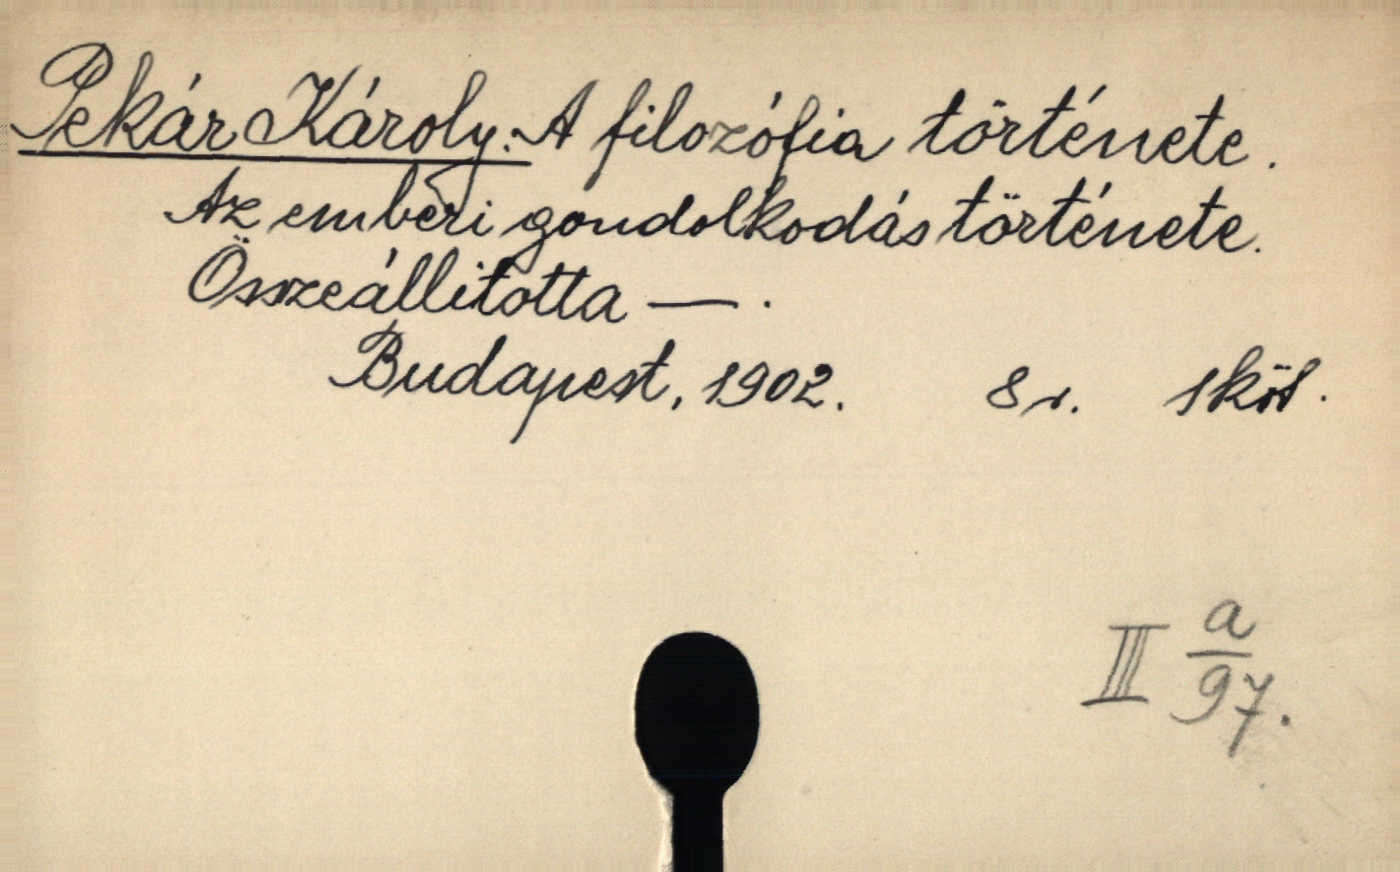 Pekár Károly: A filozófia története.
Az emberi gondolkodás története.
Összeállitotta — .
Budapest, 1902. 8 r. 1 köt.
III a/97.